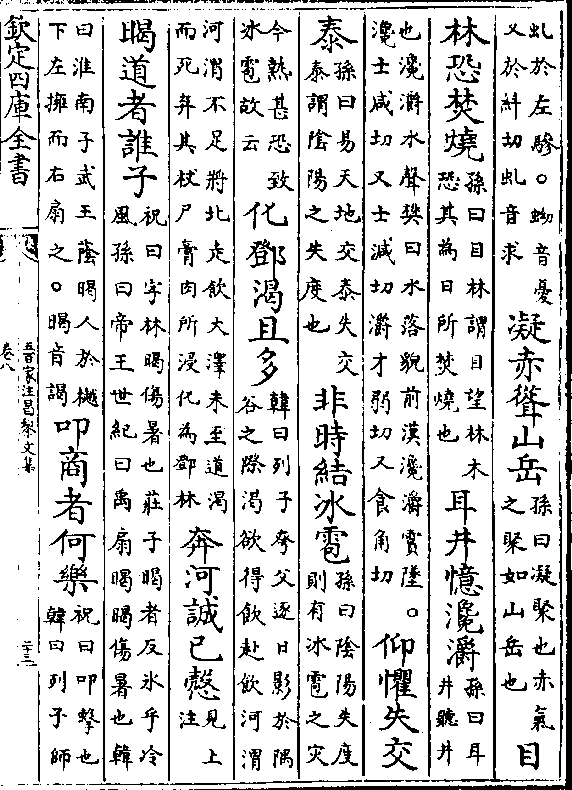 虬於左驂。蚴音憂
又於糾切虬音求
凝赤聳山岳
孫曰凝聚也赤氣
之聚如山岳也
目
林恐焚燒
孫曰目林謂目望林木
恐其為日所焚燒也
耳井憶瀺灂
孫曰耳
井聽井
也瀺灂水聲樊曰水落貌前漢瀺灂霣墜。
瀺士咸切又士減切灂才弱切又食角切
仰懼失交
泰
孫曰易天地交泰失交
泰謂陰陽之失度也
非時結冰雹
孫曰陰陽失度
則有冰雹之灾
今熱甚恐致
冰雹故云
化鄧渴且多
韓曰列子夸父逐日影於隅
谷之際渴欲得飲赴飲河渭
河渭不足將北走飲大澤未至道渴
而死弃其杖尸膏肉所浸化為鄧林
奔河誠已愨
見上
注
暍道者誰子
祝曰字林暍傷暑也莊子暍者反冰乎冷
風孫曰帝王世紀曰禹扇暍暍傷暑也韓
曰淮南子武王蔭暍人於樾
下左擁而右扇之。暍音謁
叩商者何樂
祝曰叩擊也
韓曰列子師
欽定四庫全書
五百家注昌黎文集
卷八
二十三